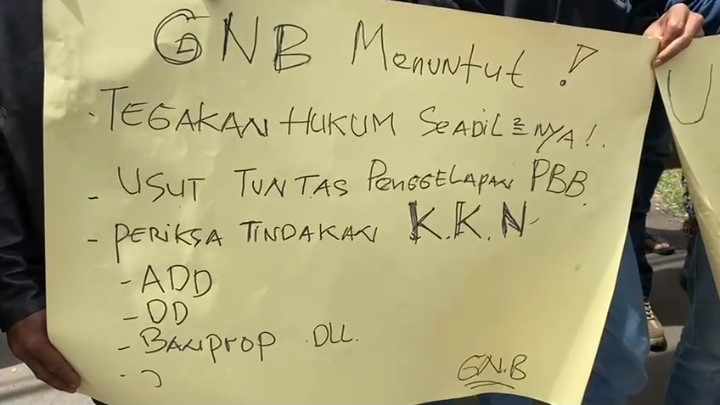 GNB Menuntut !
- TEGAKAN HUKUM SEADIL2NYA!.
- USUT TUNTAS PENGGELAPAN PBB.
- PERIKSA TINDAKAN K.K.N-
- ADD
- DD
- BANPROP DLL.
GN.B
U